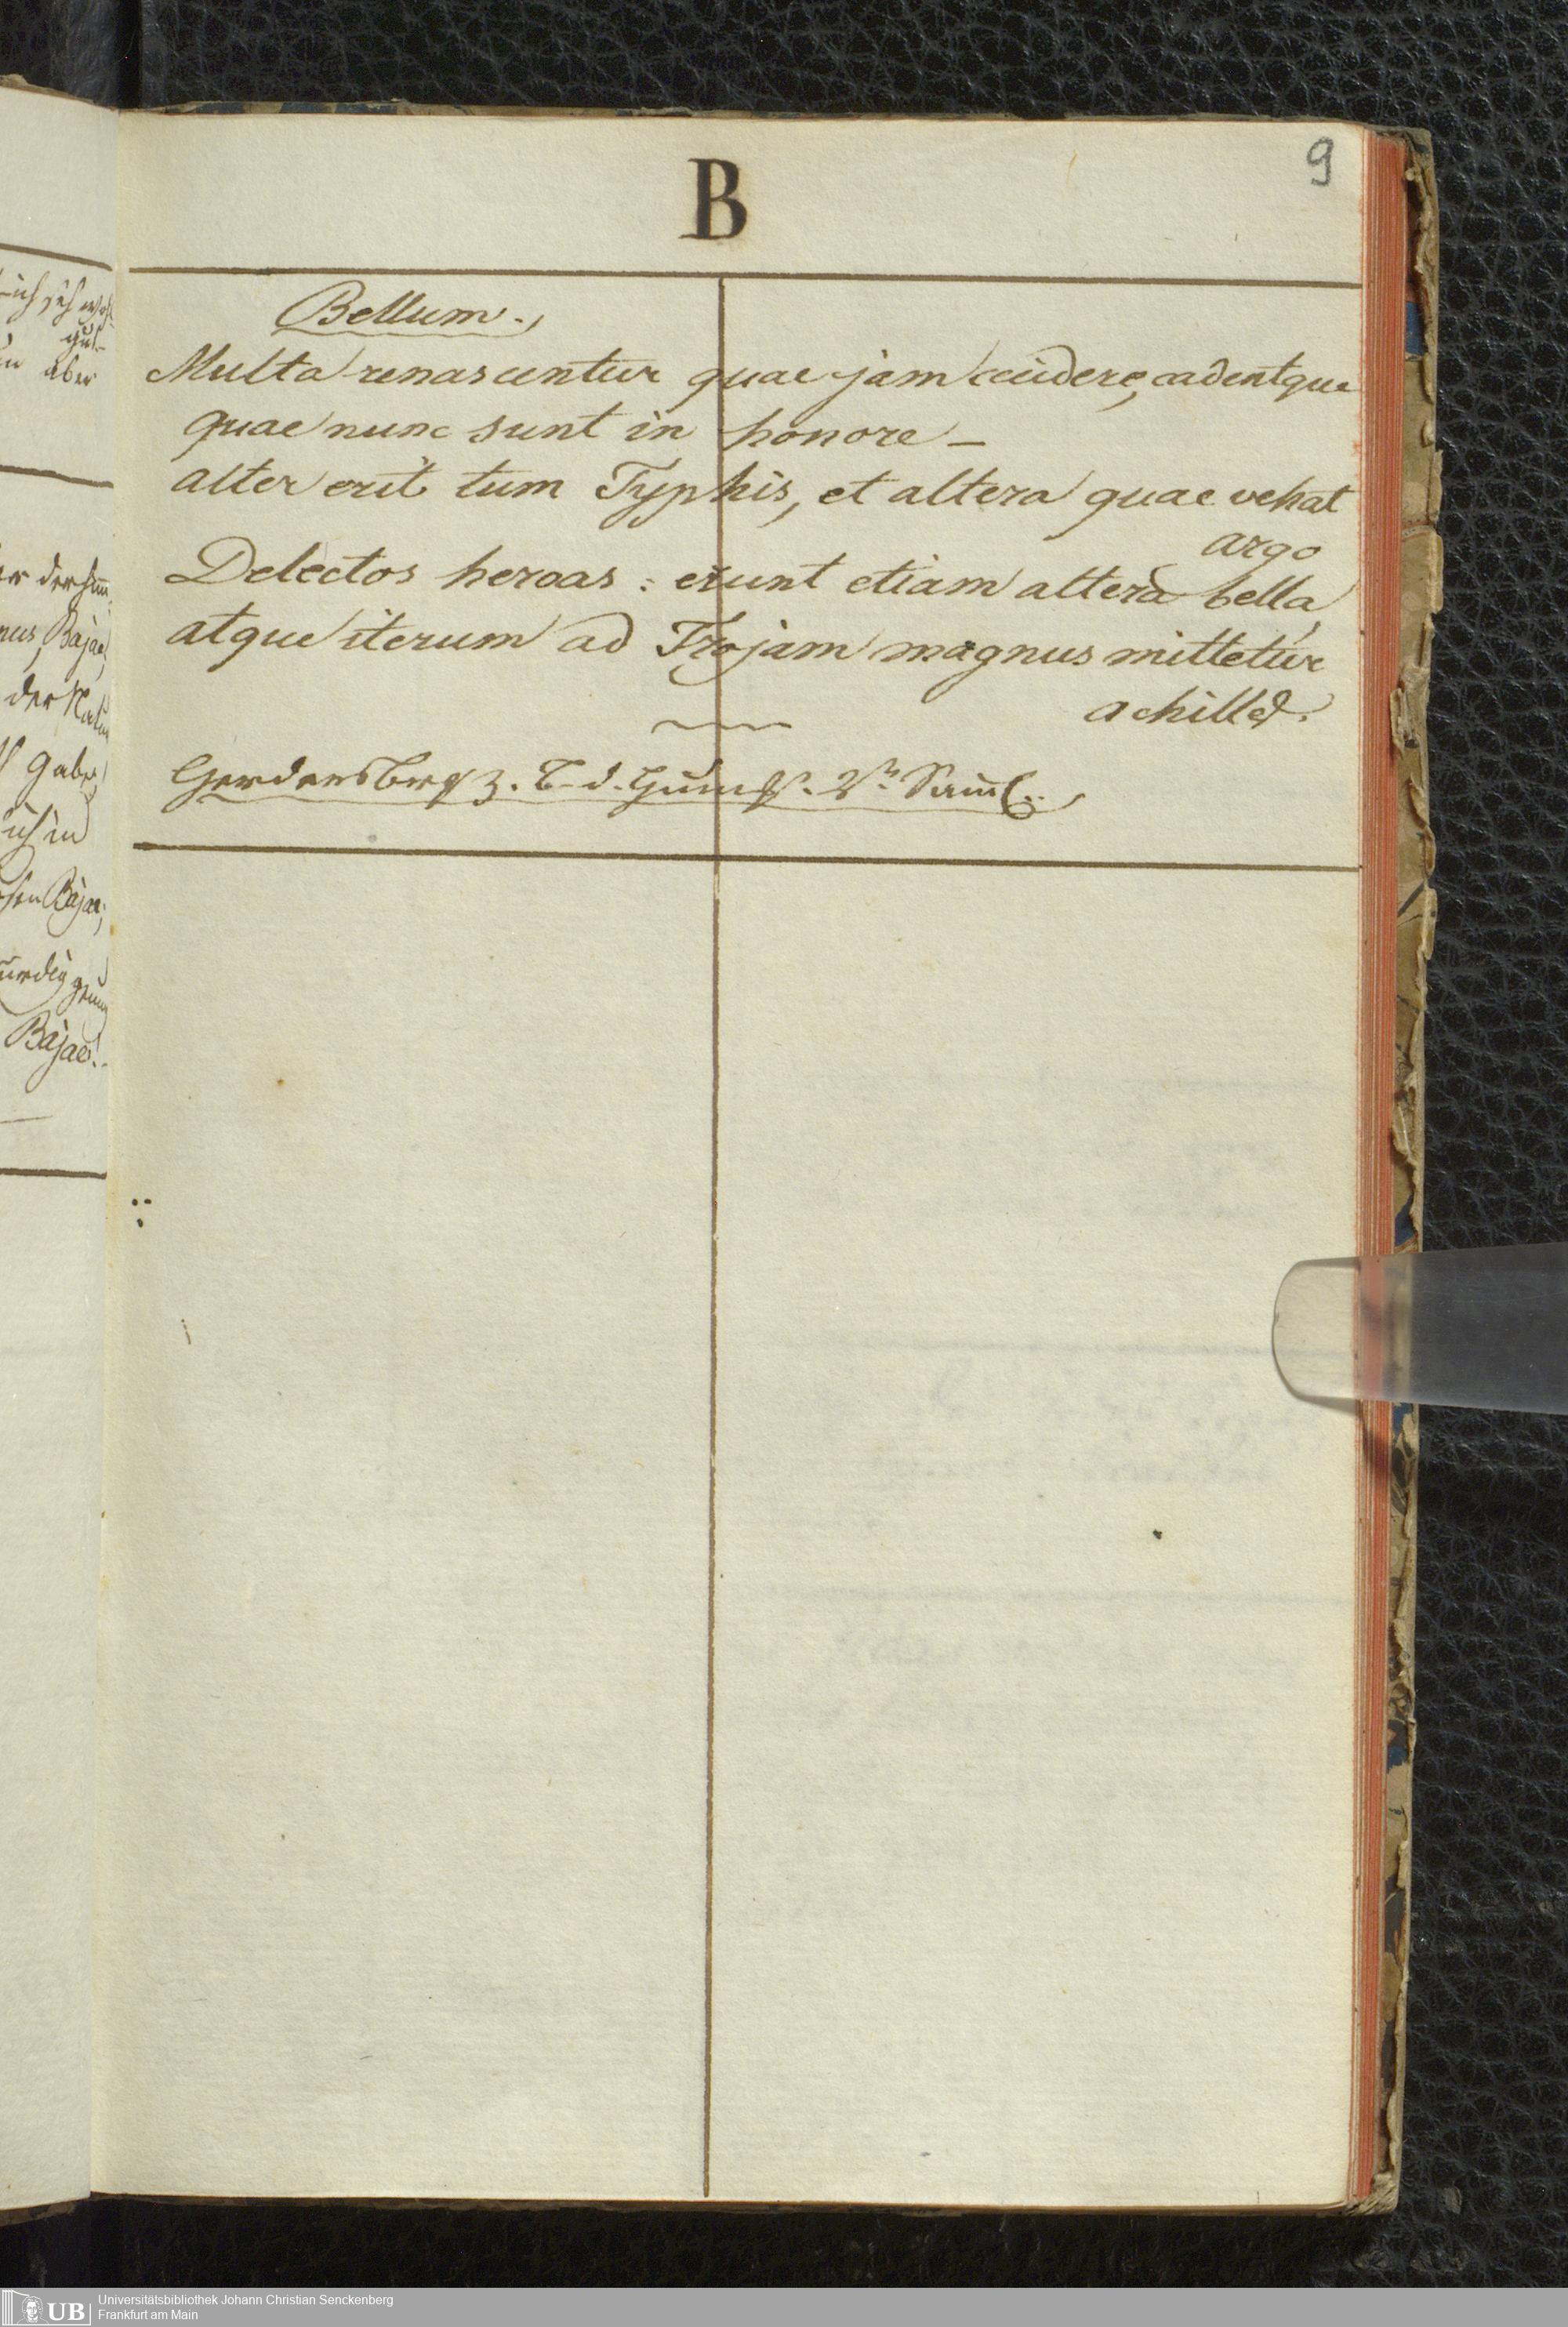 9
B
Bellum.,
Multa renascentur quae jam cecidere, cadentque
quae nunc sunt in honore –
alter erit tum Typhis, et altera quae vehat
argo
Delectos heroas: erunt etiam altera bella,
atque iterum ad Trojam magnus mittetur
achilles.
3. B. d. 2te Saml.
aber
Bajae,
der
Gabe,
Bajae,
Bajae!
Universitätsbibliothek Johann Christian Senckenberg
Frankfurt am Main
UB